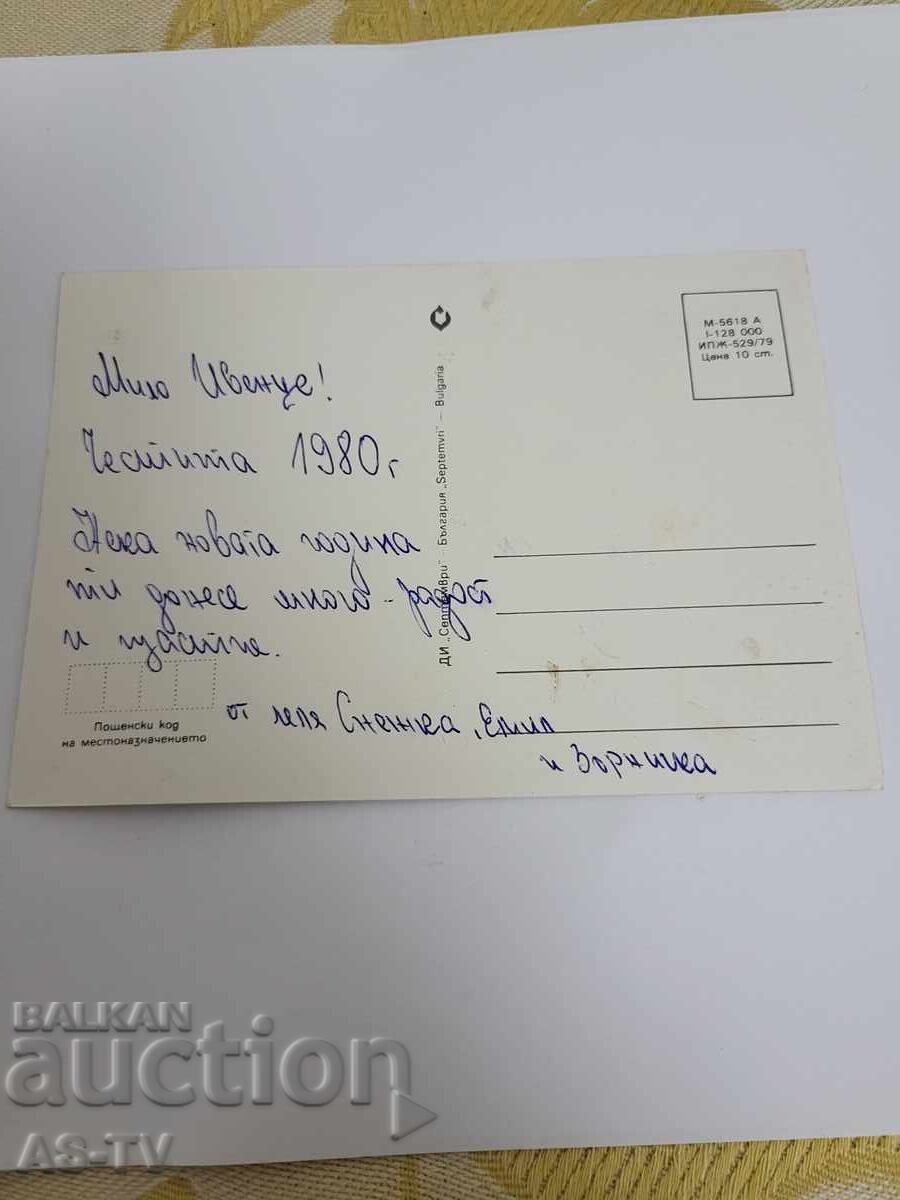 М-5618 А
I-128 000
ИПЖ-529/79
Цена 10 ст.
Мило Ивенце!
Честита 1980 г
Нека новата година
ти донесе много - радост
и щастие.
от леля Снежка, Емил
и Зорничка
ДИ „Септември" — България „Septemvri" — Bulgaria
Пощенски код
на местоназначението
BALKAN
auction
AS-TV